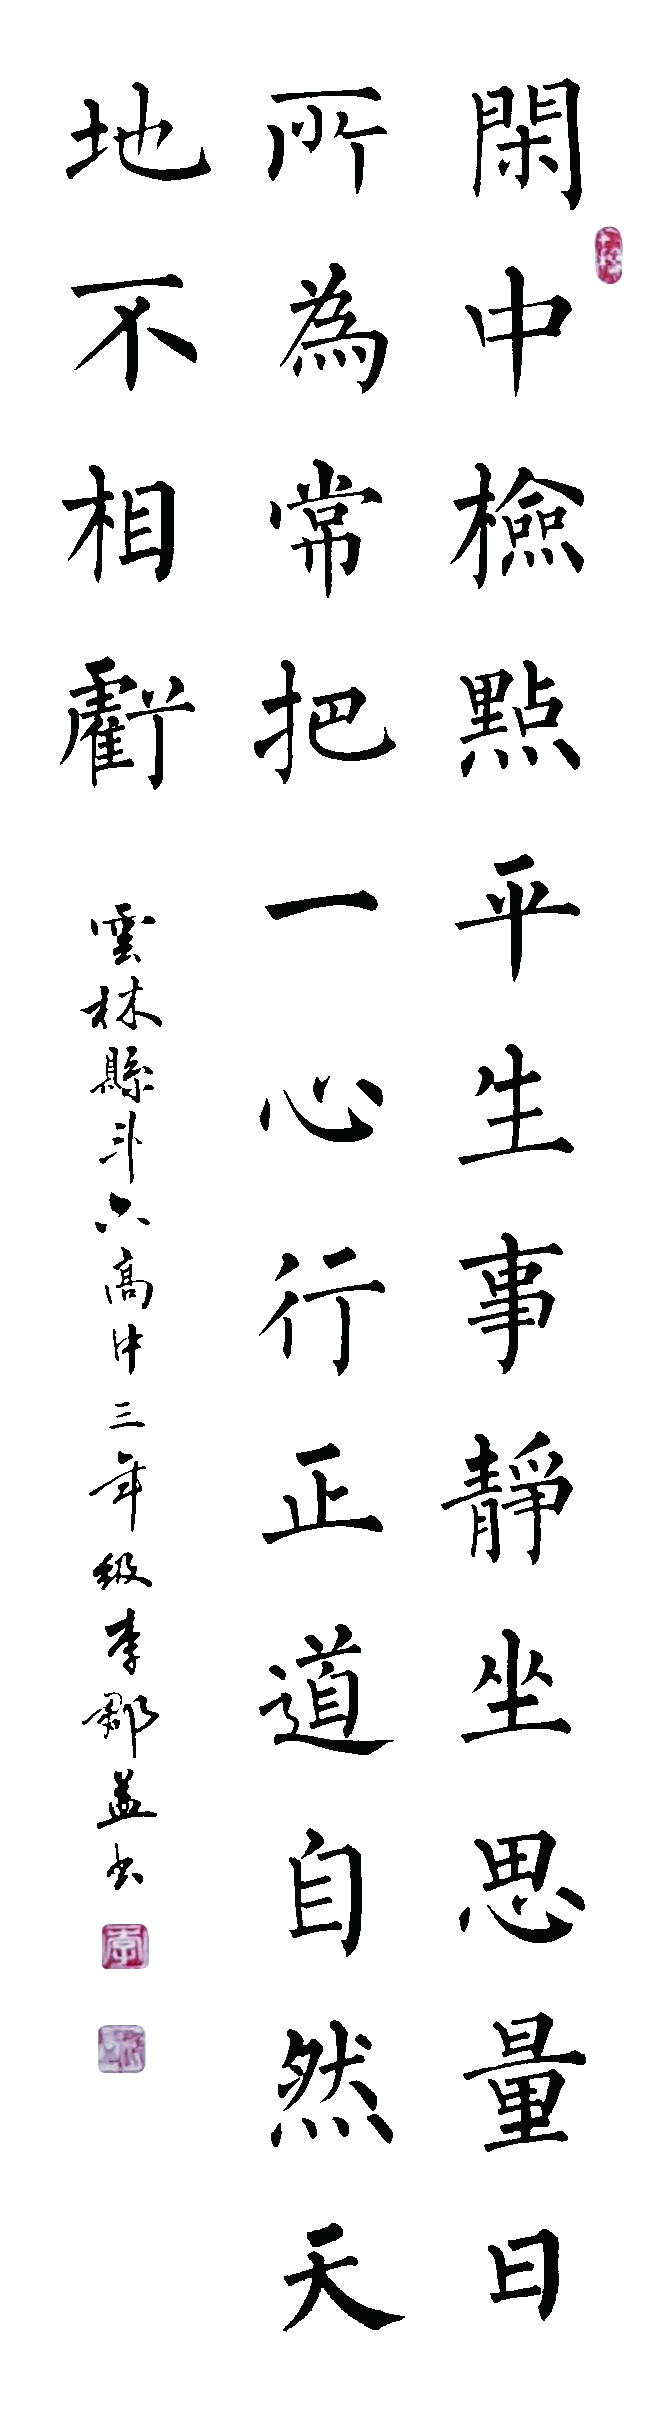 閑中檢點平生事靜坐思量日
所為常把一心行正道自然天
地不相虧
雲林縣斗六高中三年級李郡益書